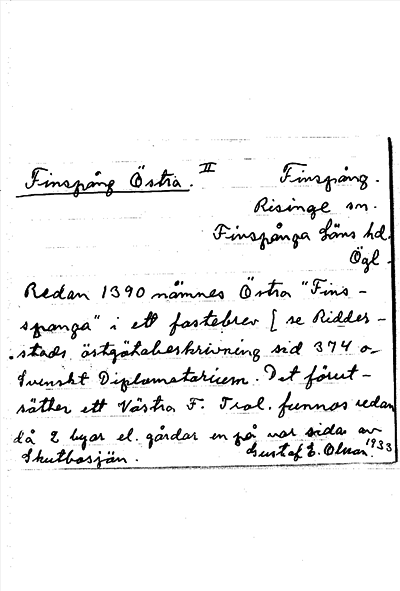 Finspång Östra. II Finspång.
Risinge sn.
Finspånga läns hd.
Ögl.
Redan 1390 nämnes Östra "Fins-
spanga" i ett fastebrev [se Ridder-
stads östgötabeskrivning sid 374 o
Svenskt Diplomatarium. Det förut-
sätter ett Västra F. Trol. funnos redan
då 2 byar el. gårdar en på var sida av
Skutbosjön. Gustaf E. Olsson. 1933